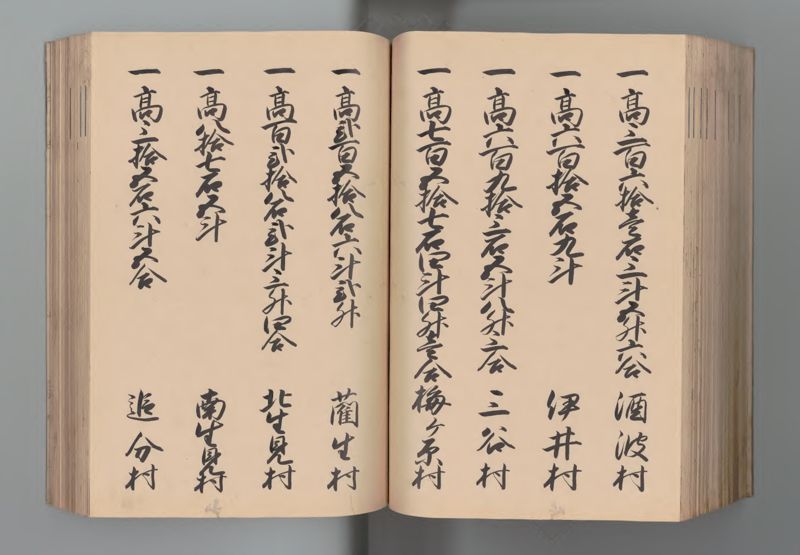 一高三百六拾壱石三斗五升六合 酒波村
一高六百拾五石九斗 伊井村
一高六百九拾三石五斗八升三合 三谷村
一高七百五拾七石四斗四升壱合 梅ケ原村
一高弐百五拾八石六斗弐升 藺生村
一高百弐拾八石弐斗三升四合 北生見村
一高八拾七石五斗 南生見村
一高三拾五石六斗五合 追分村